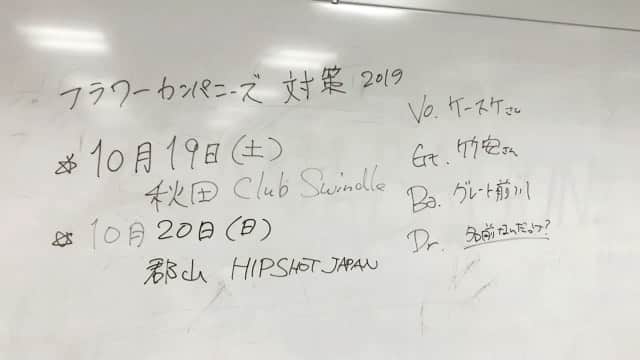 フラワーカンパニーズ 対策 2019
☆10月19日(土)
秋田 Club Swindle
☆10月20日(日)
郡山 HIPSHOT JAPAN
Vo. ケースケさん
Gt. 竹安さん
Ba. グレート前川
Dr. 名前なんだっけ?